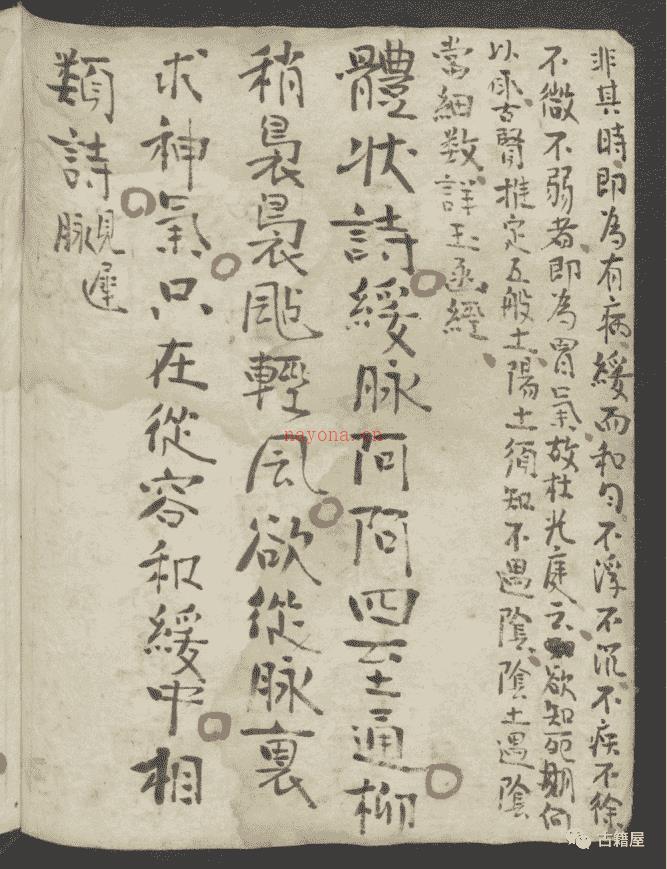 非其時即為有病緩而和匀不浮不沉不疾不徐
不微不弱者即為胃氣故杜光庭云欲知死期何
以取古賢推定五般土陽土須知不遇陰陰土遇陰
當細数詳玉函經
體状詩緩脉阿阿四至通柳
稍裊裊颭輕風欲從脉裏
求神氣只在從容和緩中相
類詩見遲脉
nayona.cn
古籍屋